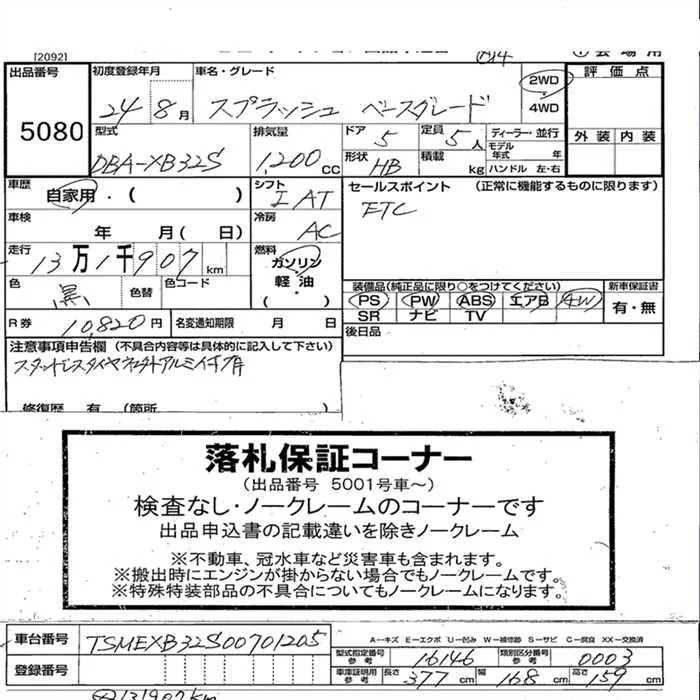 [2092]
出品番号 初度登録年月 車名・グレード 2WD 評価点
5080 24 8月 スプラッシュ ベースグレード 4WD
型式 排気量 ドア 5 定員 5人 ディーラー・並行 外装 内装
モデル年式 年
DBA-XB32S 1,200cc 形状 HB 積載 kg ハンドル 左・右
車歴 自家用・( ) シフト IAT セールスポイント (正常に機能するものに限ります)
車検 年 月( 日) 冷房 AC ETC
走行 13万1千907km 燃料 ガソリン
軽・油
( ・ )
色 黒 色替 色コード 装備品(純正品に限り○をつけてください) 新車保証書
PS PW ABS エアB AW 有・無
SR ナビ TV
R券 10,820円 名変通知期限 月 日 後日品
注意事項申告欄 (不具合内容等は具体的に記入して下さい)
修復歴 有 (箇所
落札保証コーナー
(出品番号 5001号車～)
検査なし・ノークレームのコーナーです
出品申込書の記載違いを除きノークレーム
※不動車、冠水車など災害車も含まれます。
※搬出時にエンジンが掛からない場合でもノークレームです。
※特殊特装部品の不具合についてもノークレームになります。
A－キズ E－エクボ U－凹み W－補修跡 S－サビ C－腐食 XX－交換済
車台番号 TSMEXB32S00701205 型式指定番号 参考 16146 類別区分番号 参考 0003
登録番号 車庫証明用 参考 長さ 377cm 幅 168cm 高さ 159cm
131907km